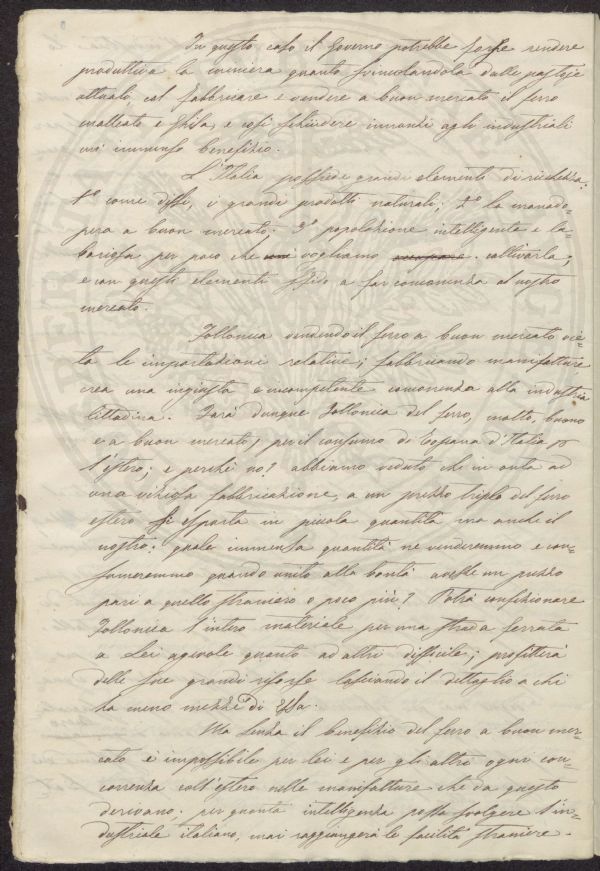 In questo caso il Governo potrebbe forse rendere
produttiva la miniera quanto svincolandola dalle pastoje
attuali, col fabbricare e vendere a buon mercato il ferro
malleato e Ghisa, e così schiudere innanzi agli industriali
un immenso benefizio.
L'Italia possiede grandi elementi di ricchezza:
1.º come dissi, i grandi prodotti naturali: 2.º la manodo-
pera a buon mercato: 3.º popolazione intelligente e la-
boriosa per poco che vogliamo coltivarla;
e con questi elementi sfido a far concorrenza al nostro
mercato.
Follonica vendendo il ferro a buon mercato vie-
ta le importazioni relative; fabbricando manifatture
crea una ingiusta e incompetente concorrenza alla industria
cittadina. Farà dunque Follonica del ferro, molto, buono
e a buon mercato, per il consumo di Toscana d'Italia p
l'estero; e perchè no? abbiamo veduto che in onta ad
una viziosa fabbricazione, a un prezzo triplo del ferro
estero si esporta in piccola quantità ma anche il
nostro: quale immensa quantità ne venderemmo e con-
sumeremmo quando unito alla bontà avesse un prezzo
pari a quello straniero o poco più? Potrà confezionare
Follonica l'intero materiale per una strada ferrata
a Lei agevole quanto ad altri difficile; profitterà
delle sue grandi risorse lasciando il dettaglio a chi
ha meno mezzi di Essa.
Ma senza il benefizio del ferro a buon mer-
cato è impossibile per lei e per gli altri ogni con-
correnza coll'estero nelle manifatture che da questo
derivano; per quanta intelligenza possa svolgere l'in-
dustriale italiano, mai raggiungerà le facilità straniere.